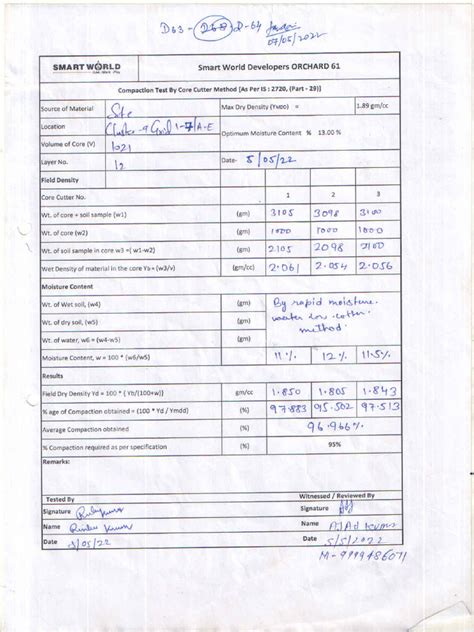 D63 - D68 D-64
07/05/2022
SMARTWORLD Smart World Developers ORCHARD 61
Compaction Test By Core Cutter Method [As Per IS : 2720, (Part - 29)]
Source of Material Site Max Dry Density (Ymdd) = 1.89 gm/cc
Location Cluster-9 Grid 1-7/A-E Optimum Moisture Content % 13.00 %
Volume of Core (V) 1021
Layer No. 12 Date- 5/05/22
Field Density
Core Cutter No. 1 2 3
Wt. of core + soil sample (w1) (gm) 3105 3098 3100
Wt. of core (w2) (gm) 1000 1000 1000
Wt. of soil sample in core w3 =( w1-w2) (gm) 2105 2098 2100
Wet Density of material in the core Yb = (w3/v) (gm/cc) 2.061 2.054 2.056
Moisture Content
Wt. of Wet soil, (w4) (gm) By rapid moisture
Wt. of dry soil, (w5) (gm)
Wt. of water, w6 = (w4-w5) (gm) method.
Moisture Content, w = 100 * (w6/w5) 11% 12% 11.5%
Results
Field Dry Density Yd = 100 * (Yb/(100+w)) gm/cc 1.850 1.805 1.843
% age of Compaction obtained = (100 * Yd / Ymdd) (%) 97.883 95.502 97.513
Average Compaction obtained (%) 96.966%
% Compaction required as per specification (%) 95%
Remarks:
Tested By Witnessed / Reviewed By
Signature Signature
Name Name
Date 5/05/22 Date 5/5/2022
M-9999486071